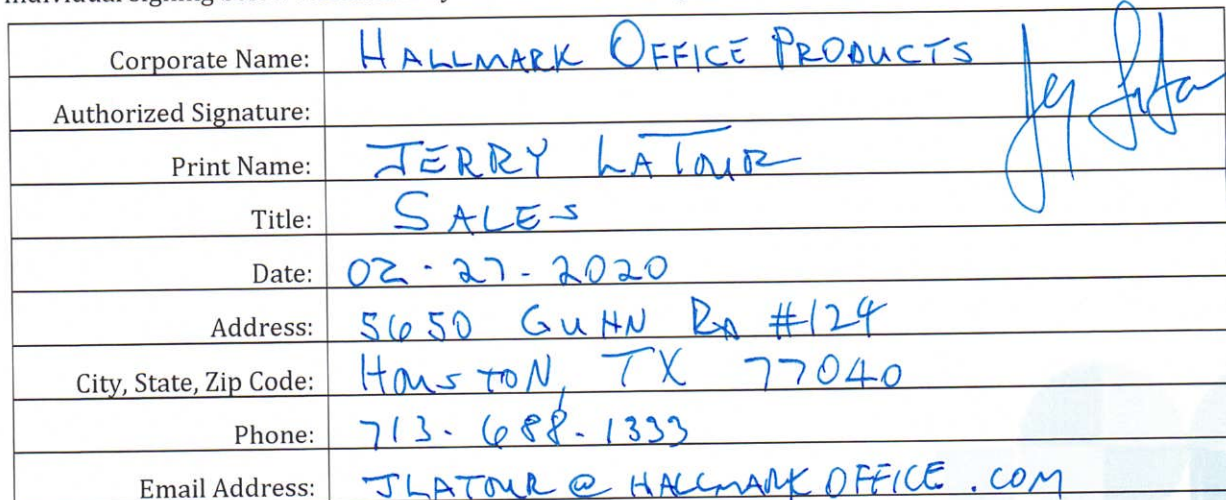 individual signing
Corporate Name: HALLMARK OFFICE PRODUCTS
Authorized Signature:
Print Name: JERRY LATOUR
Title: SALES
Date: 02-27-2020
Address: 5650 GUHN RD #124
City, State, Zip Code: HOUSTON, TX 77040
Phone: 713-688-1333
Email Address: JLATOUR@HALLMARKOFFICE.COM